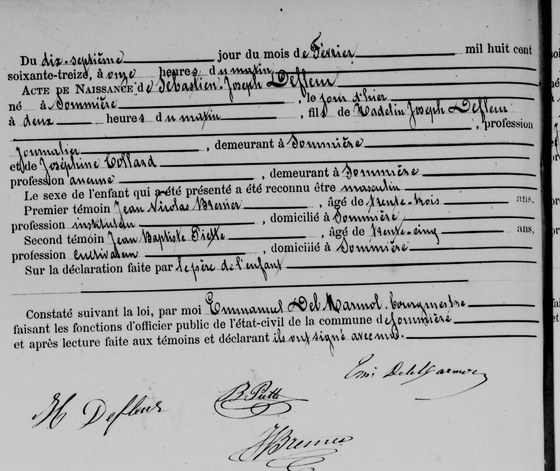 Du dix-septième jour du mois de Février mil huit cent
soixante-treize, à onze heures du matin
ACTE DE NAISSANCE de Sébastien Joseph Defleur
né à Sommière, le jour d'hier
à deux heures du matin, fils de Hadelin Joseph Defleur
, profession
Journalier, demeurant à Sommière
et de Joséphine Collard
profession aucune, demeurant à Sommière
Le sexe de l'enfant qui a été présenté a été reconnu être masculin
Premier témoin Jean Nicolas, âgé de trente-trois ans,
profession instituteur, domicilié à Sommière
Second témoin Jean Baptiste Piette, âgé de trente-cinq ans,
profession cultivateur, domicilié à Sommière
Sur la déclaration faite par le père de l'enfant
Constaté suivant la loi, par moi Emmanuel Del Marmol, bourgmestre
faisant les fonctions d'officier public de l'état-civil de la commune de Sommière
et après lecture faite aux témoins et déclarant ils ont signé avec moi.
Em. Del Marmol
H Defleur